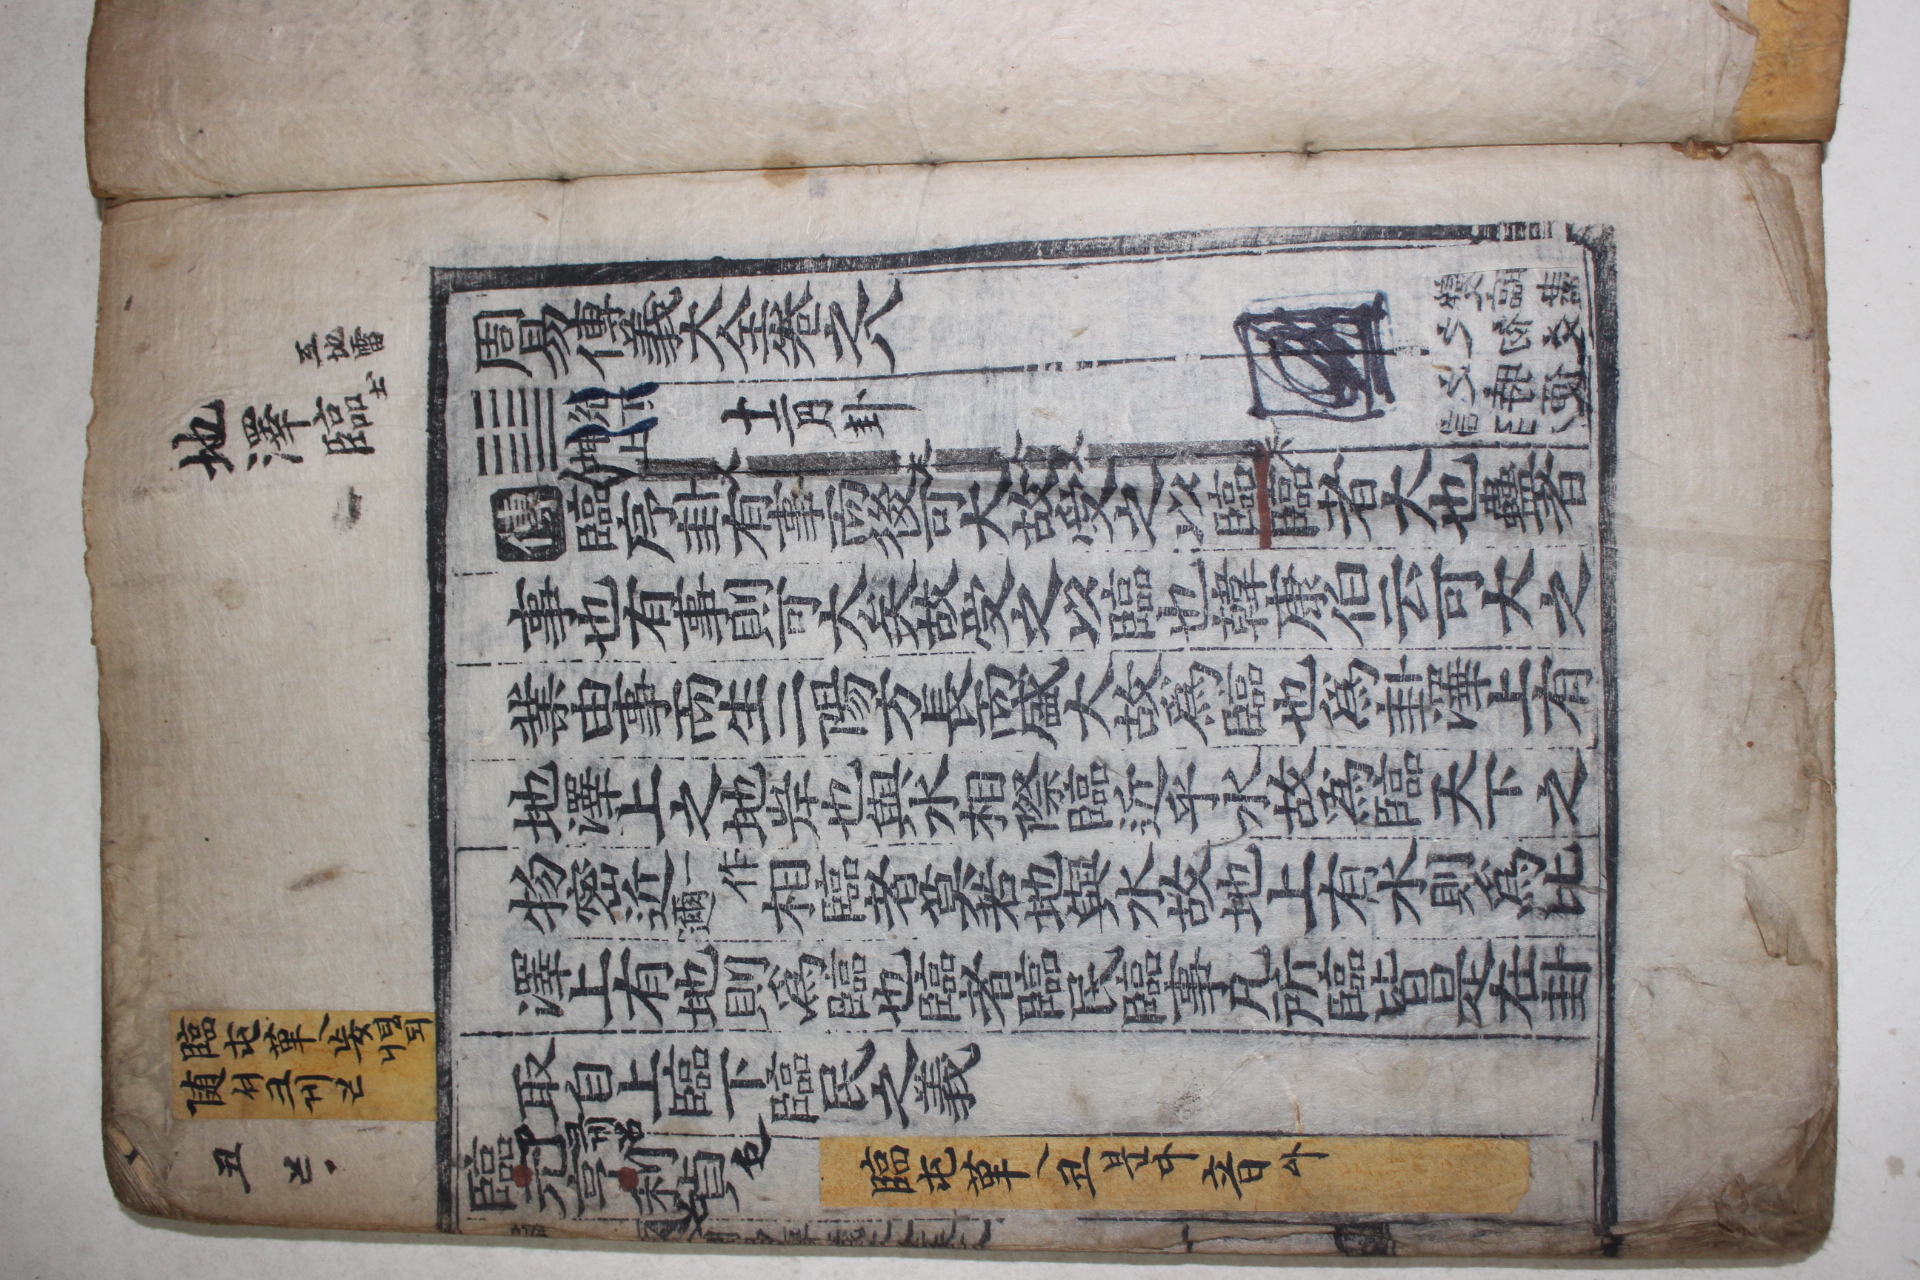 地澤臨
互地雷
土
周易傳義大全卷之八
䷒
十二月卦
傳 臨序卦有事而後可大故受之以臨臨者大也蠱者
事也有事則可大矣故受之以臨也韓康伯云可大之
業由事而生二陽方長而盛大故爲臨也爲卦澤上有
地澤上之地岸也與水相際臨近乎水故爲臨天下之
物密近一作邇相臨者莫若地與水故地上有水則爲比
澤上有地則爲臨也臨者臨民臨事凡所臨皆是在卦
取自上臨下臨民之義
臨元亨利貞
臨屯革
隨
丑
臨屯革